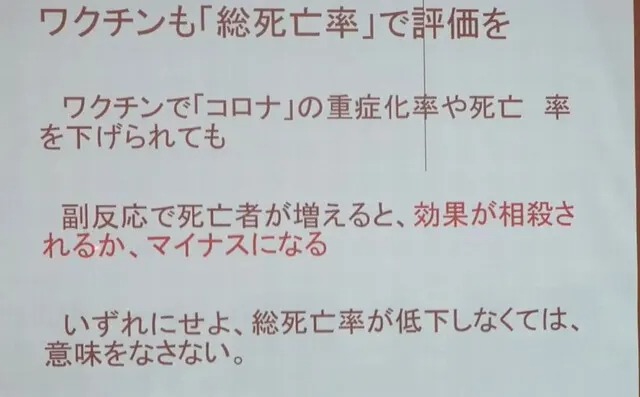 ワクチンも「総死亡率」で評価を
ワクチンで「コロナ」の重症化率や死亡　率
を下げられても
副反応で死亡者が増えると、効果が相殺さ
れるか、マイナスになる
いずれにせよ、総死亡率が低下しなくては、
意味をなさない。